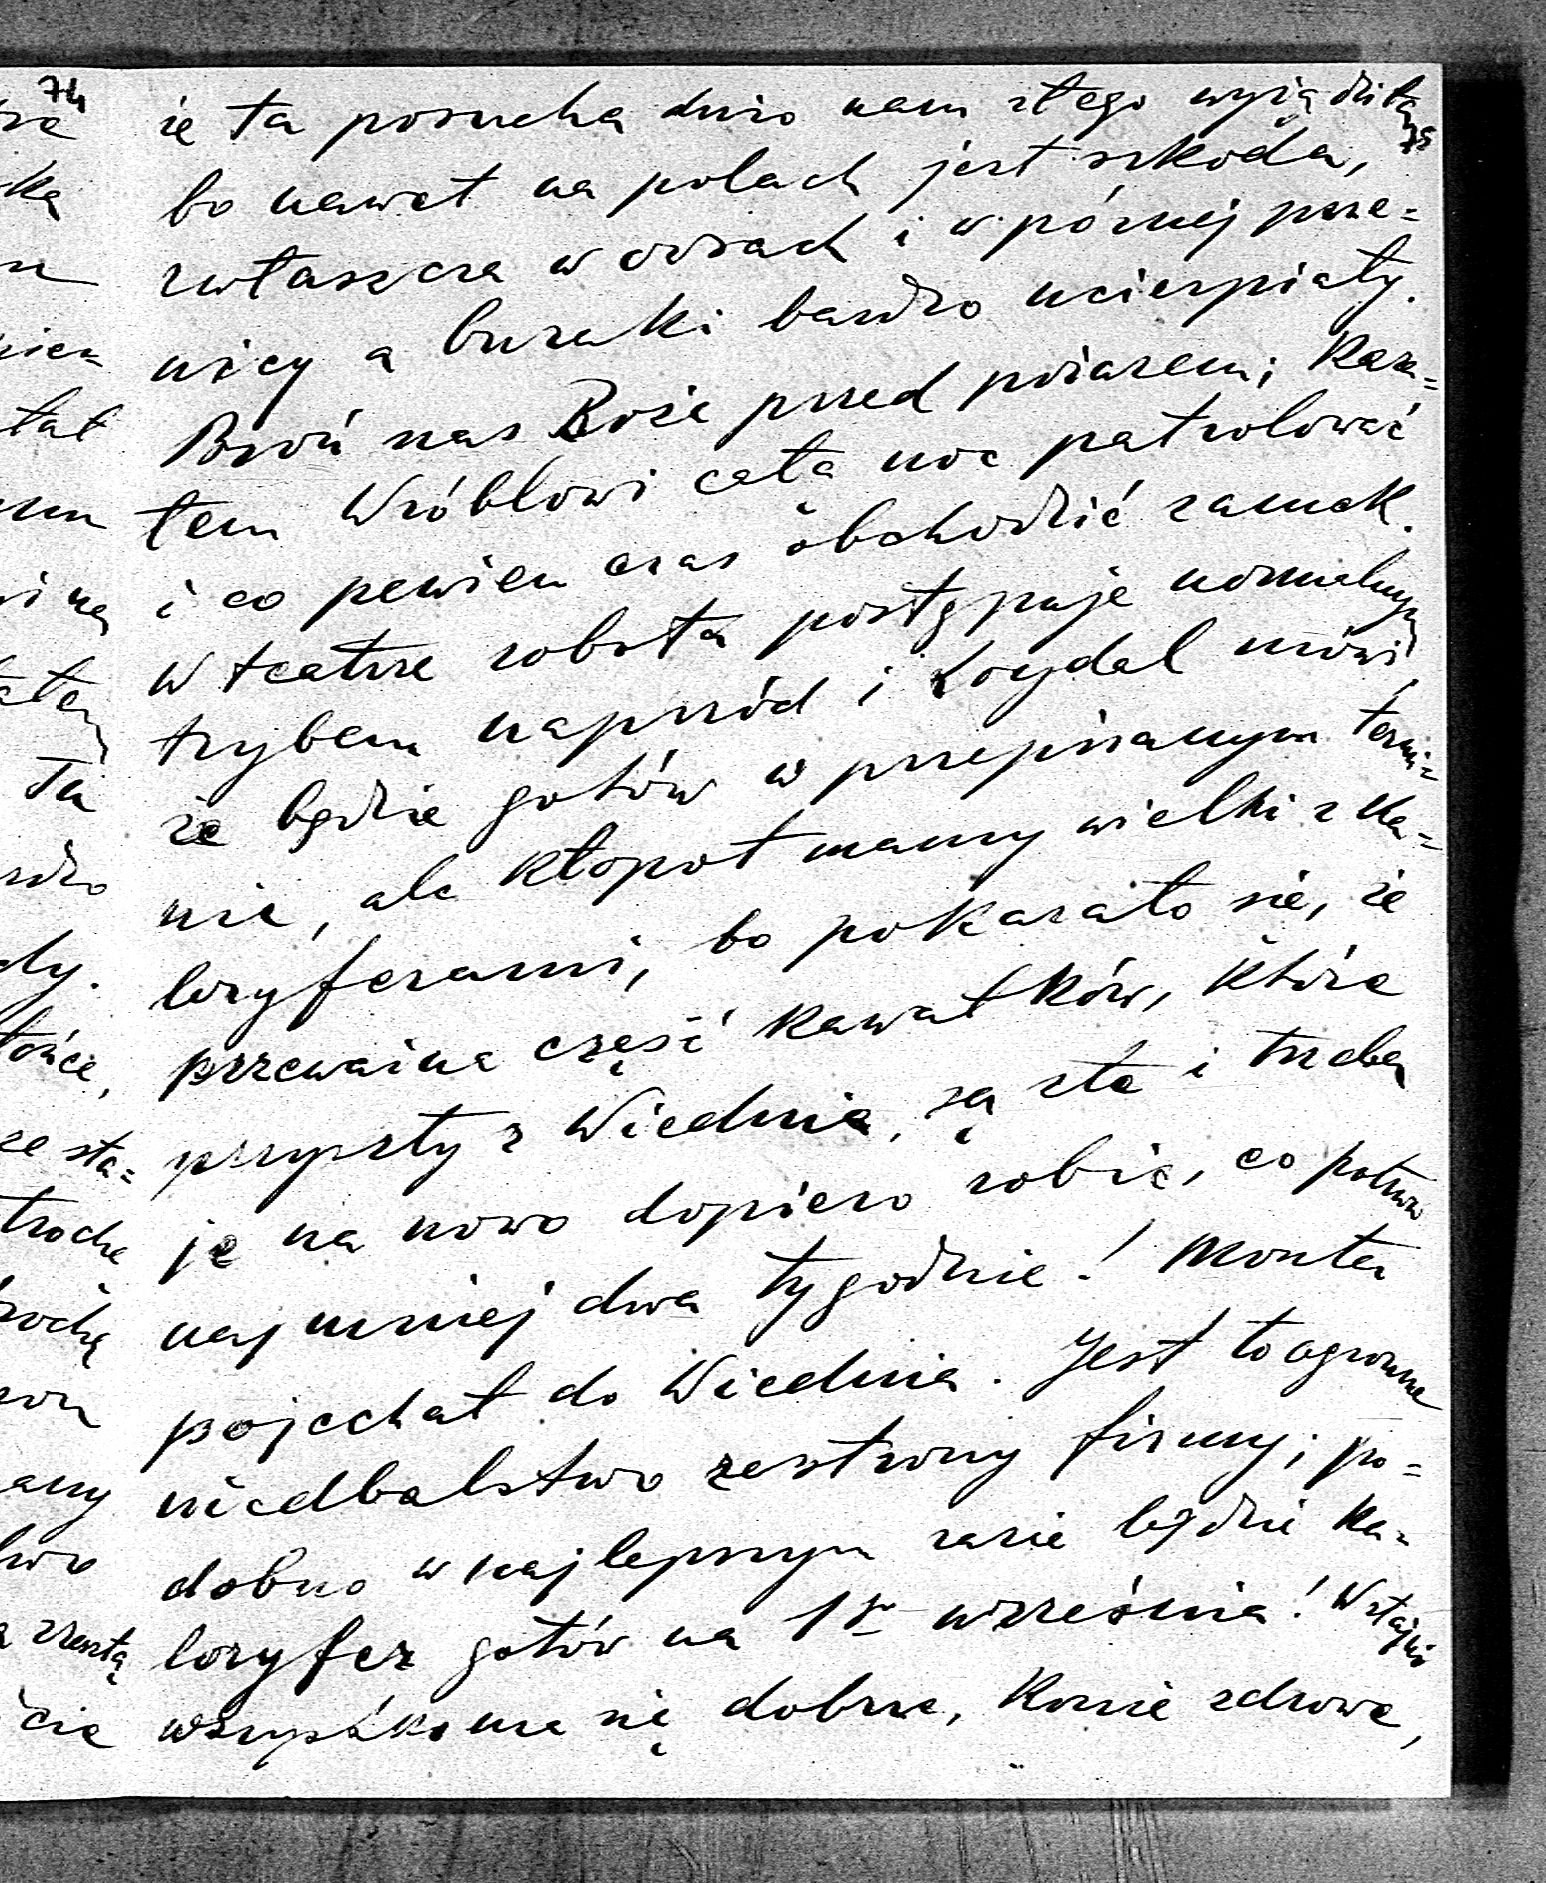 74
że ta posucha dużo nam złego wyrządziła,
75
bo nawet na polach jest szkoda,
zwłaszcza w owsach i w późnej psze=
nicy a buraki bardzo ucierpiały.
Broń nas Boże przed pożarem; Kaza=
łem Wróblowi całą noc patrolować
i co pewien czas obchodzić zamek.
W teatrze robota postępuje normalnym
trybem naprzód i Loydal mówi,
że będzie gotów w przepisanym termi=
nie, ale kłopot mamy wielki z Ka=
loryferami, bo pokazało się, że
przeważna część kawałków, które
przyszły z Wiednia, są złe i trzeba
je na nowo dopiero robić, co potrwa
najmniej dwa tygodnie! Monter
pojechał do Wiednia. Jest to ogromne
niedbalstwo ze strony firmy; po=
dobno w najlepszym razie będzie Ka=
loryfer gotów na 15 września! W stajni
wszystko ma się dobrze, Konie zdrowe,
ką
tał
Ta
dy.
ze sta=
trochę
zresztą